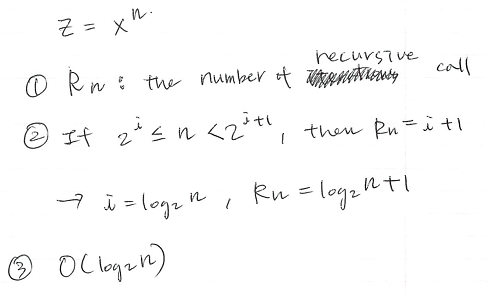 Z = xⁿ.
① Rn : the number of recursive call
② If 2ⁱ ≤ n < 2ⁱ⁺¹, then Rn = i+1
→ i = log₂n, Rn = log₂n+1
③ O(log₂n)